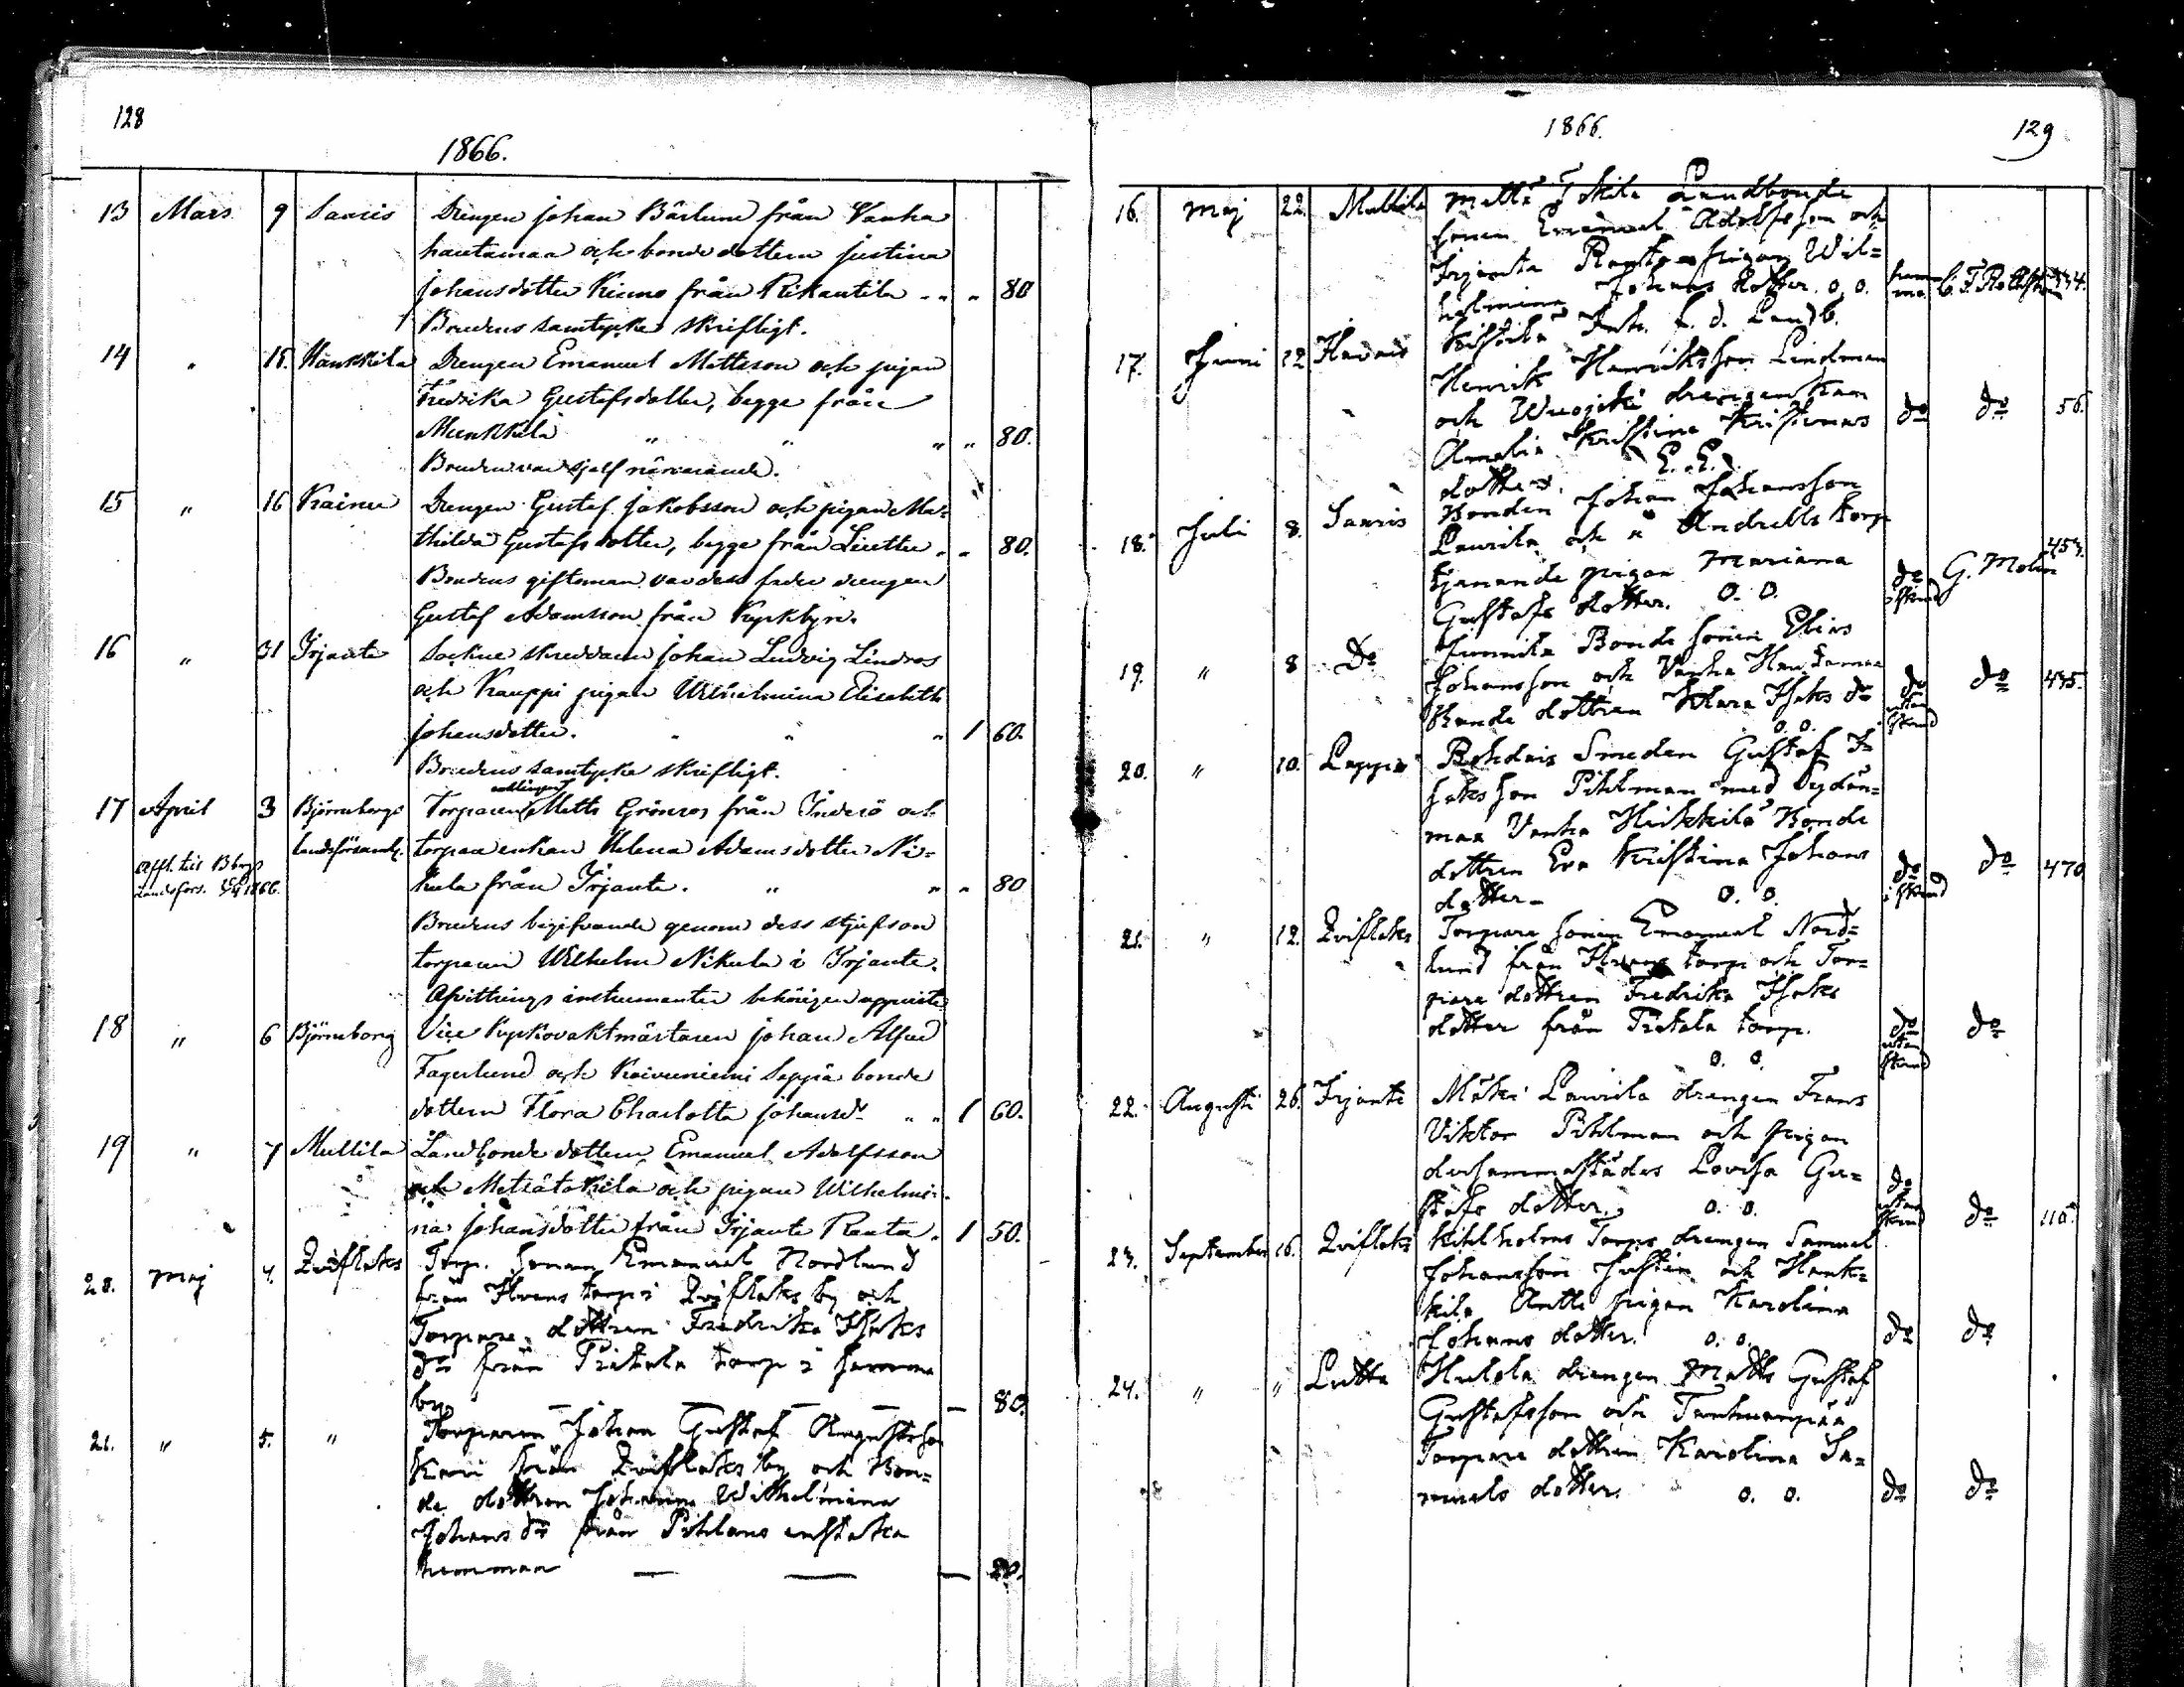 128
1866.
13 Mars 9 Sauris Drengen Johan Bärlund från Vanha
hautamaa och bonde dottern Justina
Johansdotter Kinno från Rikantila „ „ 80
Brudens samtycke skriftligt.
14 „ 15. Hankkila Drengen Emanuel Mattsson och pigan
Fredrika Gustafsdotter, begge från
Munkkila „ „ „ „ 80.
Bruden var sjelf närvarande.
15 „ 16 Kainu Drengen Gustaf Jakobsson och pigan Ma-
thilda Gustafsdotter, begge från Linttu „ „ 80.
Brudens giftoman var dess fader drengen
Gustaf Adamsson från Kyrkbyn.
16 „ 31 Irjante Sockne skreddaren Johan Ludvig Lindros
och Kauppi pigan Wilhelmina Elisabeth
Johansdotter. „ „ „ 1 60.
Brudens samtycke skriftligt.
enklingen
17 April 3 Björneborgs Torparen Matts Grönroos från Inderö och
landsförsaml. torpare enkan Helena Adamsdotter Ni-
Affl. till Bbgs
Landsförs. 1866.
kula från Irjante. „ „ „ 80
Brudens begifvande genom dess styfson
torparen Wilhelm Nikula i Irjante.
Afvittrings instrumenter behörigen uppviste
18 „ 6 Björneborg Vice Kyrkovaktmästaren Johan Alfred
Fagerlund och Koivuniemi Seppä bonde
dottern Flora Charlotta Johansdr „ „ 1 60.
19 „ 7 Mullila Landbonde dottern Emanuel Adolfsson
och Mettätokila och pigan Wilhelmi-
na Johansdotter från Irjante Ranta. 1 50.
20. Maj 4. Qviflaks Torp. sonen Emanuel Nordlund
från torp i Qviflaks by och
Torpare dottren Fredrika Isaks
dr från Pietala torp i samma
by — — — — — 80.
21. „ 5. „ Torparen Johan Gustaf Augustsson
Kari från Qviflaks by och Bon-
de dottren Johanna Wilhelmina
Johans dr från Pihlaus enstaka
hemman — — — 80.
1866.
129
16. Maj 22. Mullila Mettä Tokila Landbonde
sonen Emanuel Adolfsson och
Irjanta Ranta pigan Wil-
helmina Johans dotter. o. o. hemma C. F. 334.
17. Juni 22 Inh. f. d. Landb.
Henrik Henriksson Lindman
och Wuojoki drengenkan
Amalia Kristina Kristians
dotter. E. E. do do 56.
18. Juli 8. Sauris Bonden Johan Johansson
Laurila och Andrells torp
tjenande pigan Mariana
Gustafs dotter. o. o. do G. Molin 453.
19. „ 8 Do Junnila Bonde sonen Elias
Johansson och Vanha Hautamaa
Bonde dottren Klara Isaks dr
o. o. do utan do 435.
20. „ 10. Lappi Rohdais Smeden Gustaf I-
saksson Pihlman med Sydän-
maa Vanha Heikkilä Bonde
dottren Eva Kristina Johans
dotter — o. o. do do 470
21. „ 12. Qviflaks Torpare sonen Emanuel Nord-
lund från torp och Tor-
pare dottren Fredrika Isaks
dotter från Pietala torp.
o. o. do utan do
22. Augusti 26. Irjante Mäki Laurila drengen Frans
Viktor Pihlman och pigan
dersammastädes Lovisa Gu-
stafs dotter. o. o. do utan do 110.
23. September 16. Qviflaks Kihlholms Torps drengen Samuel
Johansson Justin och Hank-
kila Antti pigan Karolina
Johans dotter. o. o. do do
24. „ „ Lutta Hulola drengen Matts Gustaf
Gustafsson och Tanhuanpää
Torpare dottren Karolina Sa-
muels dotter. o. o. do do